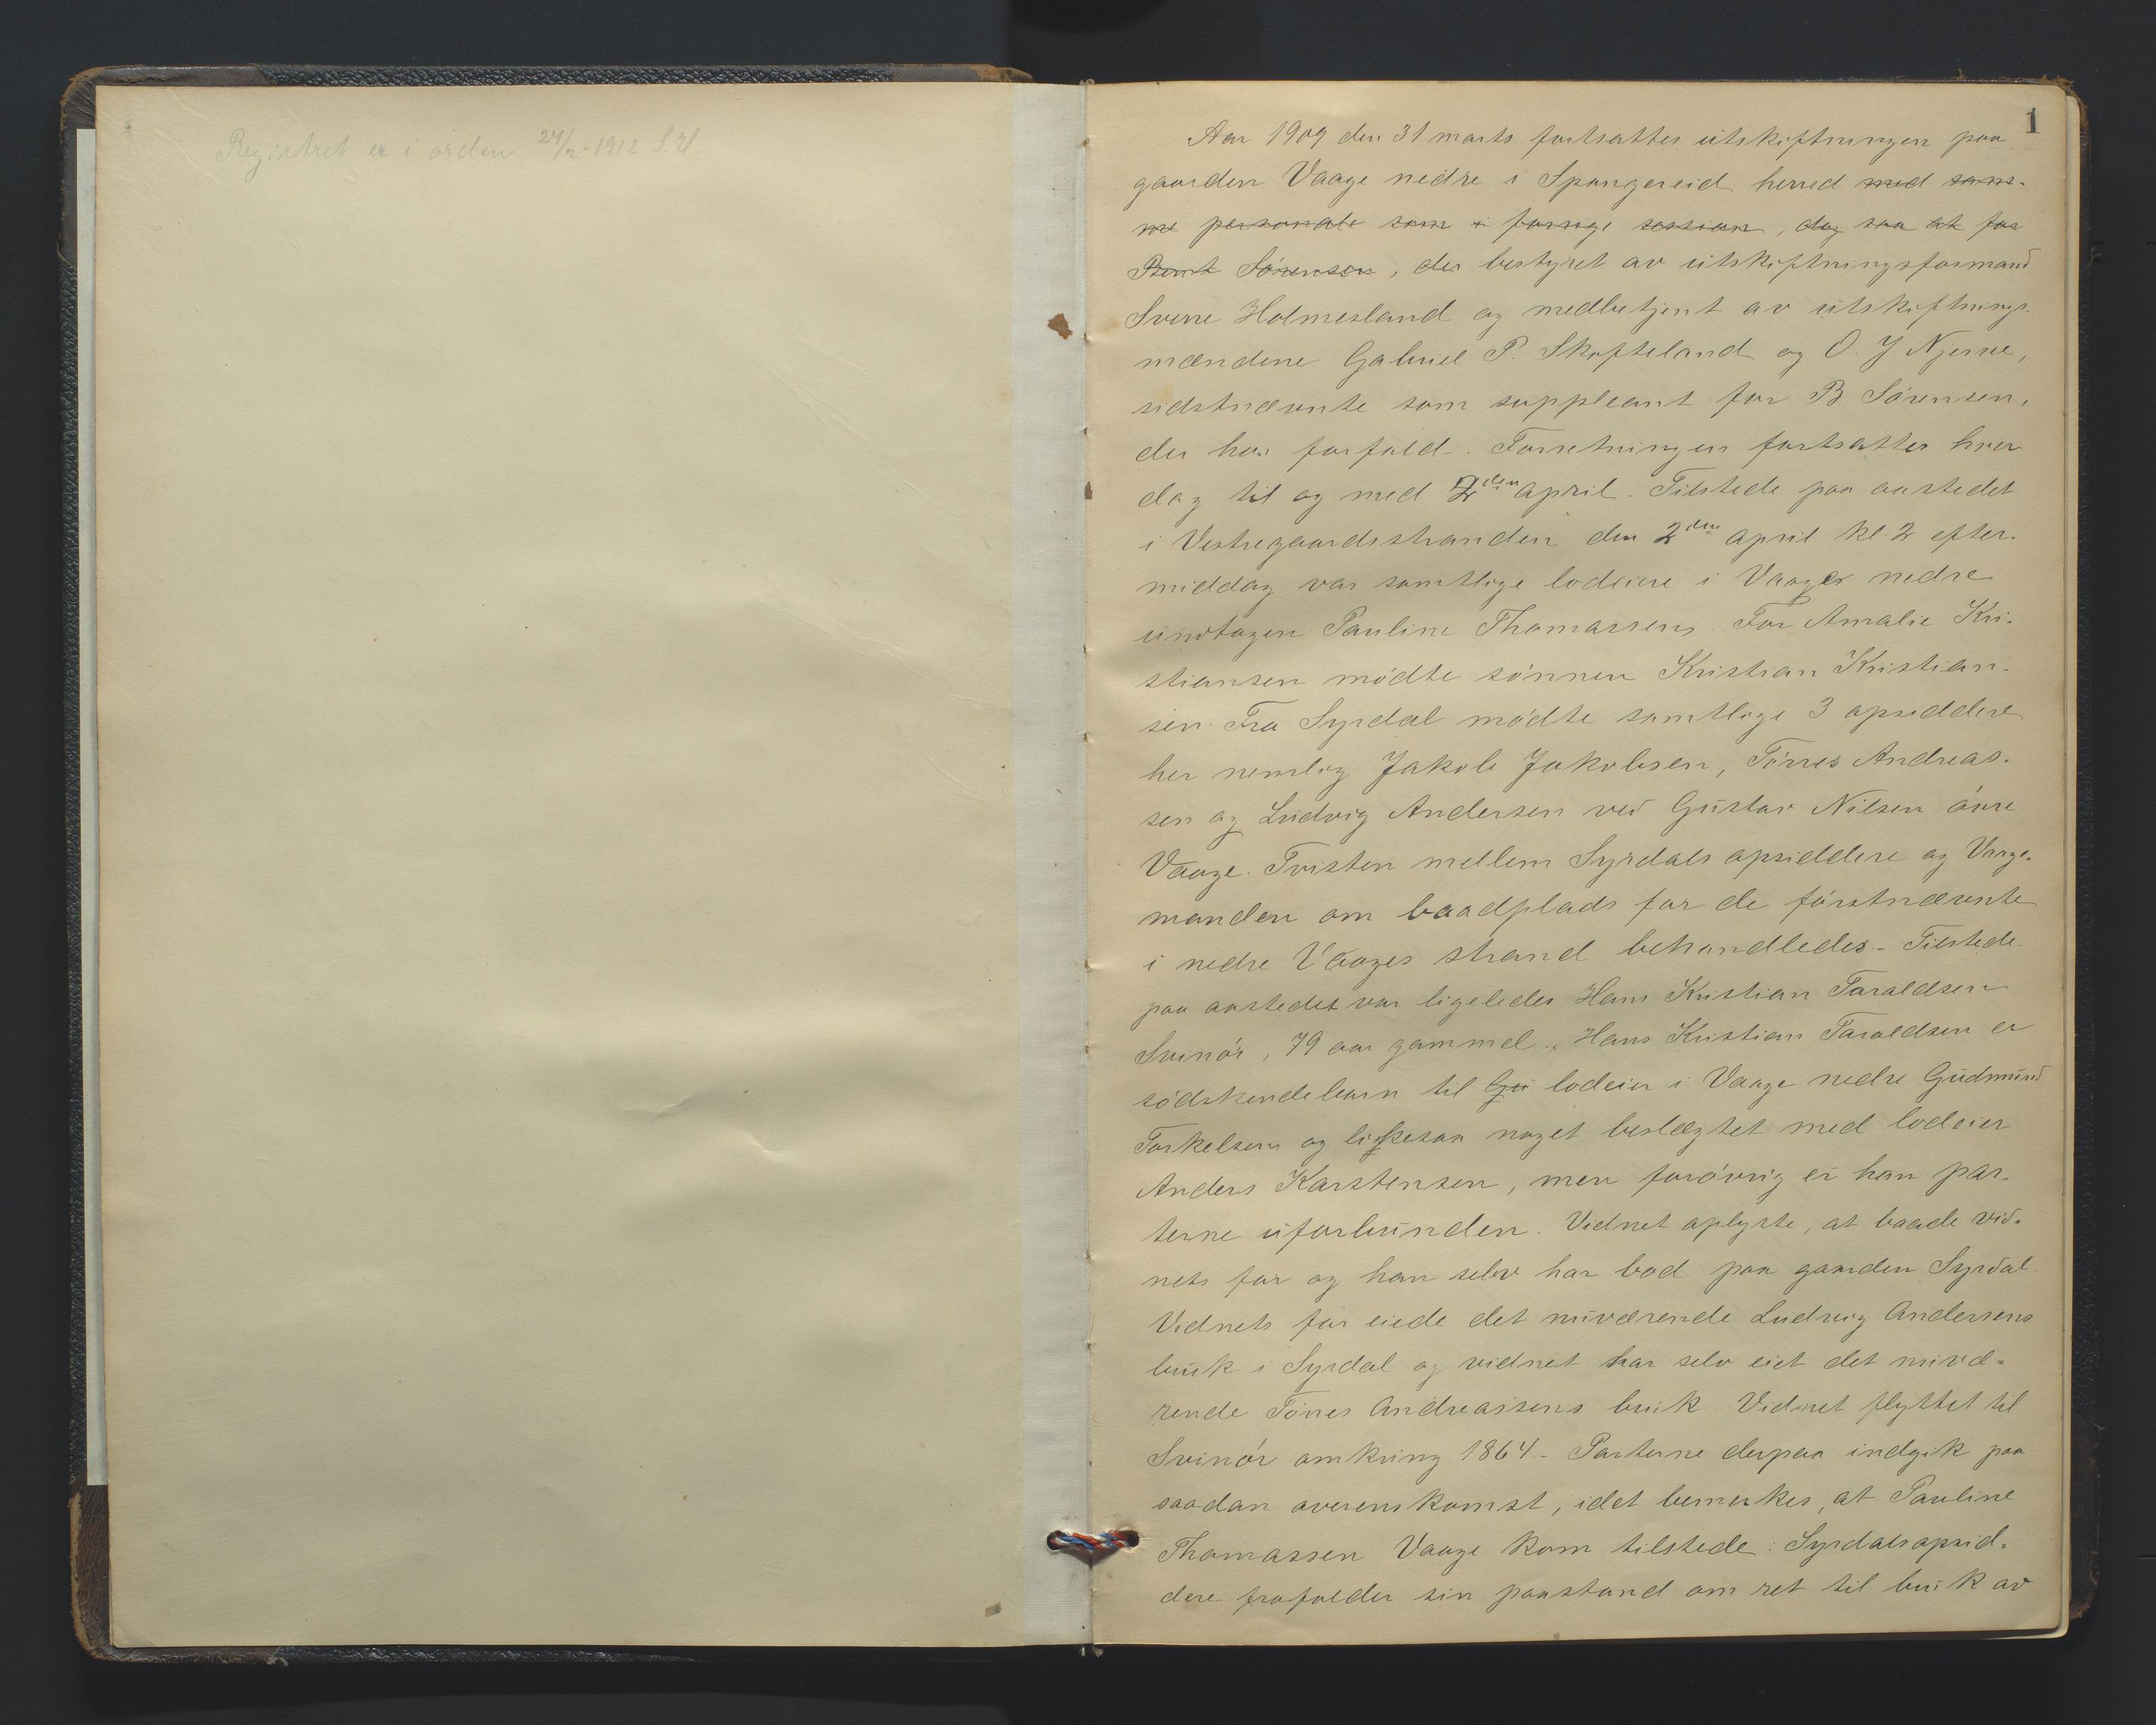 Registret er i orden 24/2-1912 S.H.
1
Aar 1909 den 31 marts fortsattes utskiftningen paa
gaarden Vaage nedre i Spangereid herred med sam-
me personale som i forrige session, dog saa at for
Bernt Sörensen, der bestyret av utskiftningsformand
Sverre Holmesland og medbetjent av utskiftnings-
mændene Gabriel P. Skofteland og O. J. Njerve,
sidstnævnte som suppleant for B Sörensen,
der har forfald. Forretningen fortsattes hver
dag til og med 2den april. Tilstede paa aastedet
i Vestregaardsstranden den 2den april kl 2 efter-
middag var samtlige lodeiere i Vaage nedre
undtagen Pauline Thomassen. For Amalie Kri-
stiansen mödte sönnen Kristian Kristian-
sen. Fra Syrdal mödte samtlige 3 opsiddere
her nemlig Jakob Jakobsen, Tönnes Andreas-
sen og Ludvig Andersen ved Gustav Nilsen övre
Vaage. Tvisten mellem Syrdals opsiddere og Vaage-
manden om baadplads for de förstnævnte
i nedre Vaages strand behandledes - Tilstede
paa aastedet var ligeledes Hans Kristian Taraldsen
Svinör, 79 aar gammel. Hans Kristian Taraldsen er
södskendebarn til Gu lodeier i Vaage nedre Gudmund
Torkelsen og likesaa noget beslægtet med lodeier
Anders Karstensen, men forövrig er han par-
terne uforbunden. Vidnet oplyste, at baade vid-
nets far og han selv har bod paa gaarden Syrdal.
Vidnets far eiede det nuværende Ludvig Andersens
bruk i Syrdal og vidnet har selv eiet det nuvæ-
rende Tönnes Andreassens bruk. Vidnet flyttet til
Svinör omkring 1864 - Parterne derpaa indgik paa
saadan overenskomst, idet bemerkes, at Pauline
Thomassen Vaage kom tilstede: Syrdalsopsid-
dere frafalder sin paastand om ret til bruk av